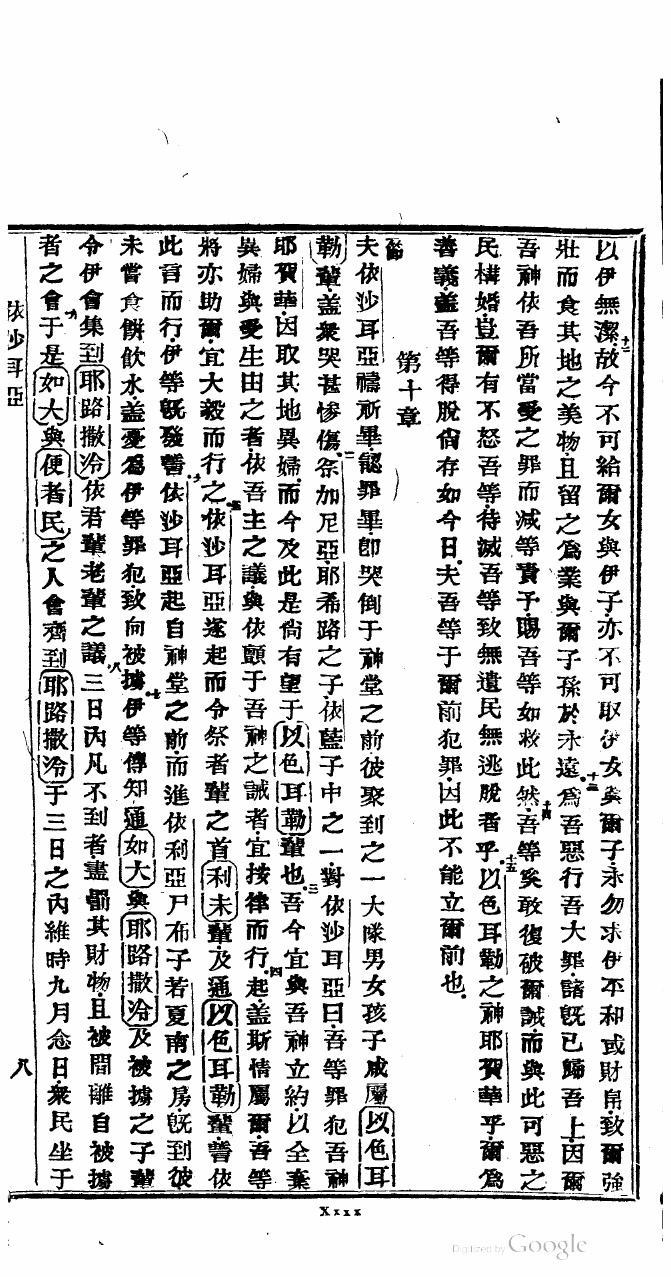 以伊無潔故今不可給爾女與伊子亦不可取伊女與爾子永勿求伊平和或財帛致爾強
十二
壯而食其地之美物且留之爲業與爾子孫於永遠爲吾惡行吾大罪諸既已歸吾上因爾
十三
吾神依吾所當受之罪而減等責予賜吾等如救此然吾等奚敢復破爾誡而與此可惡之
十四
民構婚豈爾有不怒吾等待滅吾等致無遺民無逃脫者乎以色耳勒之神耶賀華乎爾爲
十五
善義蓋吾等得脫尙存如今日夫吾等于爾前犯罪因此不能立爾前也
第十章
節
夫依沙耳亞禱祈畢認罪畢卽哭倒于神堂之前彼聚到之一大隊男女孩子咸屬以色耳
勒輩蓋衆哭甚慘傷祭加尼亞耶希路之子依藍子中之一對依沙耳亞曰吾等罪犯吾神
二
耶賀華因取其地異婦而今及此是尙有望于以色耳勒輩也吾今宜與吾神立約以全棄
三
異婦與受生由之者依吾主之議與依顫于吾神之誡者宜按律而行起蓋斯情屬爾吾等
四
將亦助爾宜大毅而行之依沙耳亞遂起而令祭者輩之首利未輩及通以色耳勒輩誓依
五
此言而行伊等既發誓依沙耳亞起自神堂之前而進依利亞尸布子若夏南之房既到彼
六
未嘗食餅飲水蓋憂爲伊等罪犯致向被擄伊等傳知通如大與耶路撒冷及被擄之子輩
七
令伊會集到耶路撒冷依君輩老輩之議三日內凡不到者盡罰其財物且被間離自被擄
八
者之會于是如大與便者民之人會齊到耶路撒冷于三日之內維時九月念日衆民坐于
九
依沙耳亞
八
Xxxx
Digitized by Google